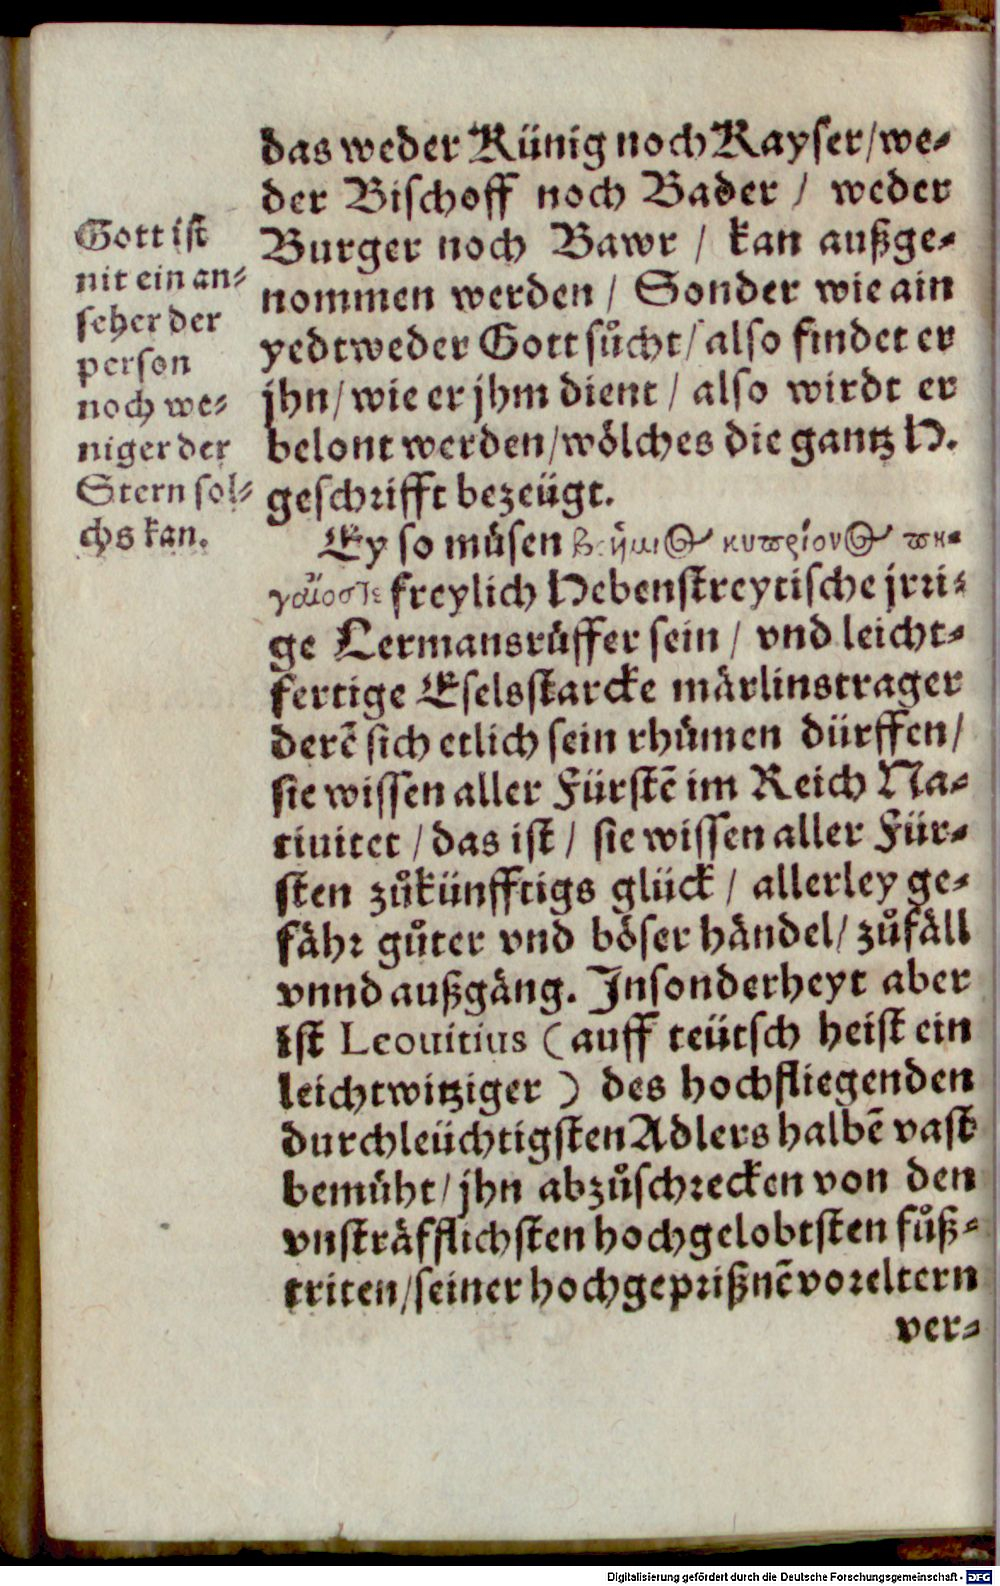 das weder Künig noch Kayser/we-
der Bischoff noch Bader / weder
Burger noch Bawr / kan außge-
nommen werden / Sonder wie ain
yedtweder Gott suͦcht/ also findet er
jhn/ wie er jhm dient / also wirdt er
belont werden/woͤlches die gantz H.
geschrifft bezeügt.
Gott ist
nit ein an-
seher der
person
noch we-
niger der
Stern sol-
chs kan.
Ey so muͤsen
freylich Hebenstreytische jrri-
ge Lermansruͤffer sein / vnd leicht-
fertige Eselsstarcke maͤrlinstrager
derẽ sich etlich sein rhuͤmen dürffen/
sie wissen aller Fürstẽ im Reich Na-
tiuitet / das ist / sie wissen aller Für-
sten zuͦkünfftigs glück / allerley ge-
faͤhr guͦter vnd boͤser haͤndel/ zuͦfaͤll
vnnd außgaͤng. Insonderheyt aber
ist Leouitius (auff teütsch heist ein
leichtwitziger ) des hochfliegenden
durchleüchtigsten Adlers halbẽ vast
bemuͤht/ jhn abzuͦschrecken von den
vnstraͤfflichsten hochgelobtsten fuͦß-
triten/seiner hochgeprißnẽ voreltern
ver-
Digitalisierung gefördert durch die Deutsche Forschungsgemeinschaft - DFG